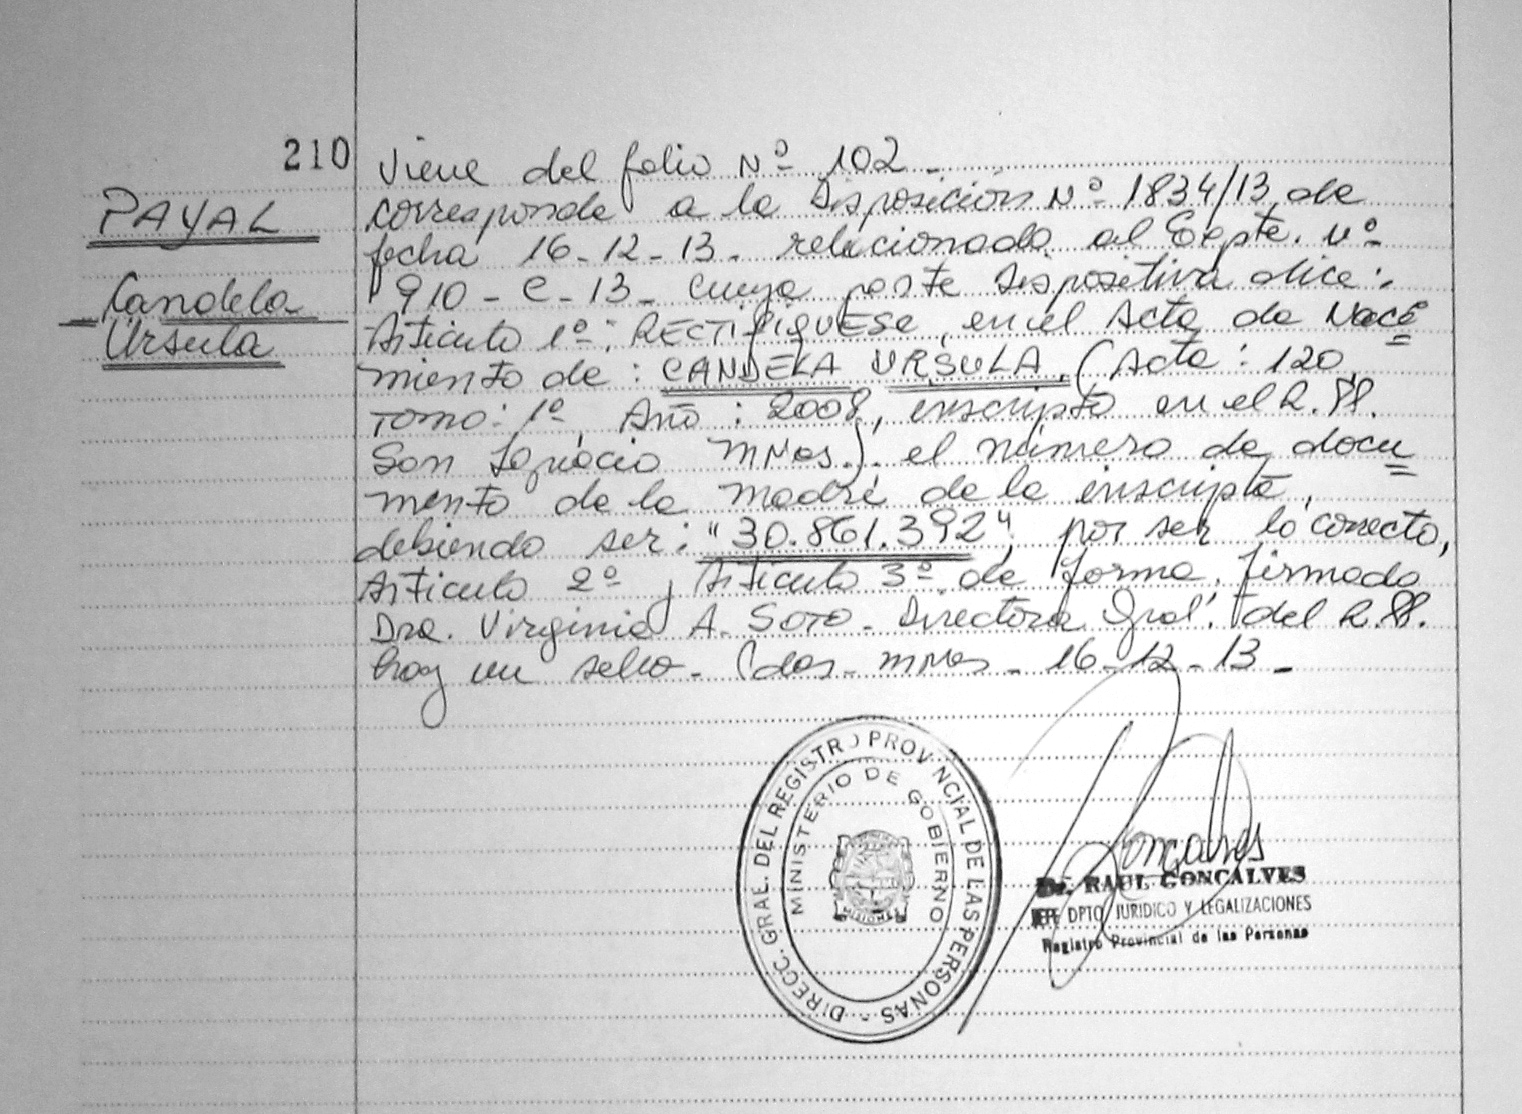 210
PAYAL
Candela
Ursula
Viene del folio Nº 102 -
corresponde a la Disposición Nº 1834/13 de
fecha 16-12-13- relacionado al Expte. Nº
910-C-13- cuya parte dispositiva dice:
Articulo 1º: RECTIFIQUESE, en el Acta de Naci
miento de: CANDELA URSULA. (Acta: 120,
Tomo: 1º, Año: 2008, inscripto en el R.PP.
San Ignacio Mnes.). el número de docu
mento de la madre de la inscripta,
debiendo ser: "30.861.392", por ser lo correcto,
Articulo 2º y Articulo 3º de forma. firmado
Dra. Virginia A. Soto - Directora Gral. del R.PP.
hay un sello - Pdas - Mnes - 16-12-13 -
DIRECC. GRAL. DEL REGISTRO PROVINCIAL DE LAS PERSONAS -
MINISTERIO DE GOBIERNO
MISIONES
Goncalves
Dr. RAUL GONCALVES
JEFE DPTO JURIDICO Y LEGALIZACIONES
Registro Provincial de las Personas